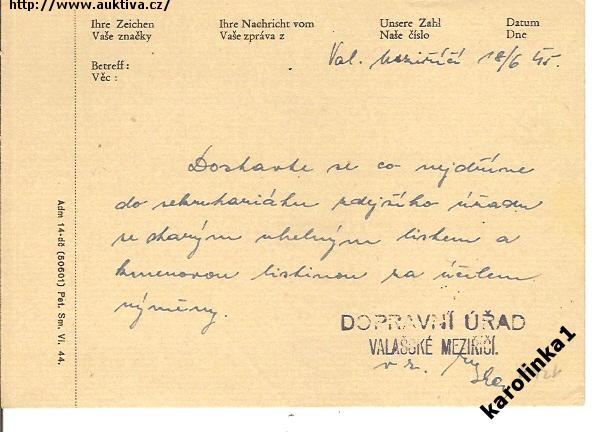 http://www.auktiva.cz/
Ihre Zeichen Ihre Nachricht vom Unsere Zahl Datum
Vaše značky Vaše zpráva z Naše číslo Dne
Betreff: Val. Meziříčí 18/6 45.
Věc :
Dostavte se co nejdříve
do sekretariátu zdejšího úřadu
se starým uhelným listem a
kmenovou listinou za účelem
výměny.
DOPRAVNÍ ÚŘAD
VALAŠSKÉ MEZIŘÍČÍ.
v z.
Adm 14-dč (50601) Pet. Sm. VI. 44.
karolinka1